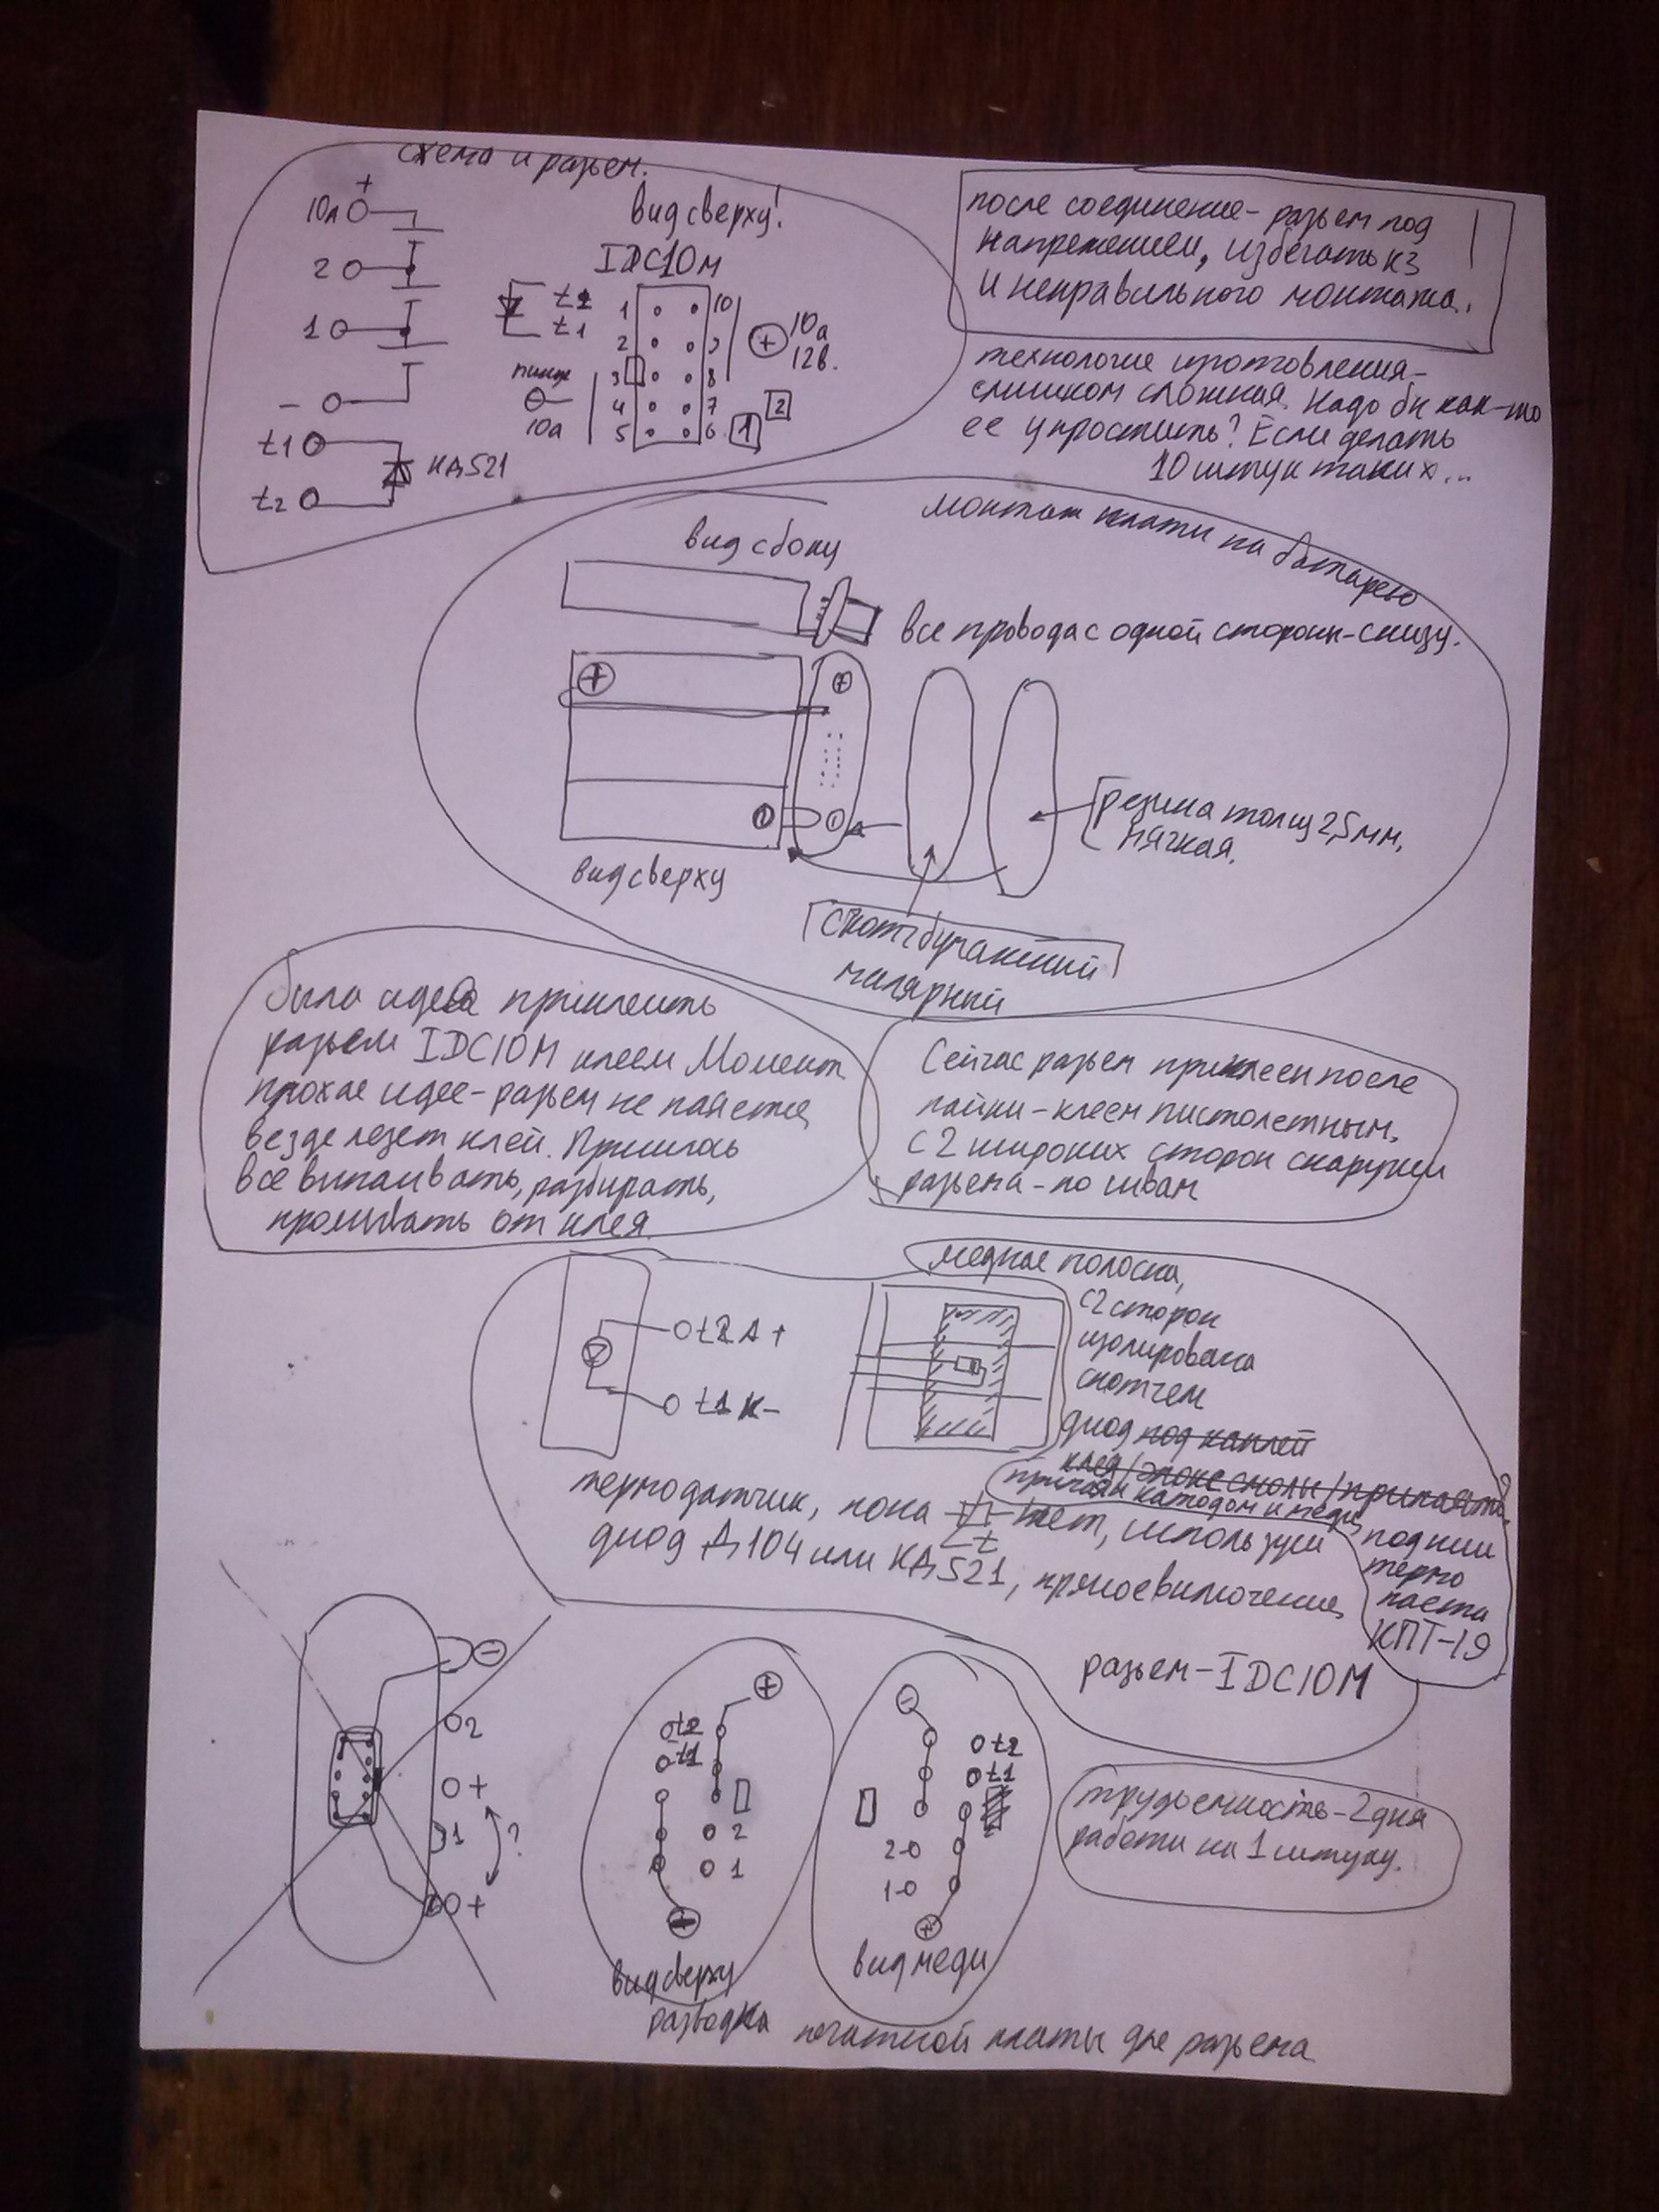 схема и разьем.
+
10А
2
1
-
t1
t2
КД521
вид сверху!
IDC10M
t2
t1
1 10
2 9
3 8
4 7
5 6
+ 10а
12в.
10а
1
2
после соединение - разьем под
напрежением, избегать КЗ
и неправильного монтажа.
технологие изготовления -
слишком сложная. Надо бы как-то
ее упростить? Если делать
10 штук таких...
монтаж платы на батарею
вид сбоку
все провода с одной стороны - снизу.
+
+
-
-
резина толщ 2,5мм,
мягкая.
вид сверху
скотч бумажный
малярный
была идея приклеить
разьем IDC10M клеем Момент
плохае идее - разьем не паяетсц
везде лезет клей. Пришлось
все выпаивать, разбирать,
промывать от клея.
Сейчас разьем приклеен после
пайки - клеем пистолетным.
с 2 широких сторон снаружи
разьема - по швам
t2 A +
t1 K -
медная полоска,
с 2 сторон
изолирована
скотчем
диод под каплей
клея/эпокс смолы/припаять
припаян катодом к меди,
под ним
термо
паста
КПТ-19
термодатчик, пока -t нет, используй
диод Д104 или КД521, прямое включение
разьем - IDC10M
-
2
+
1
+
?
+
t2
t1
2
1
-
вид сверху
-
t2
t1
2
1
+
вид меди
трудоемкость - 2 дня
работы на 1 штуку.
разводка печатной платы для разьема